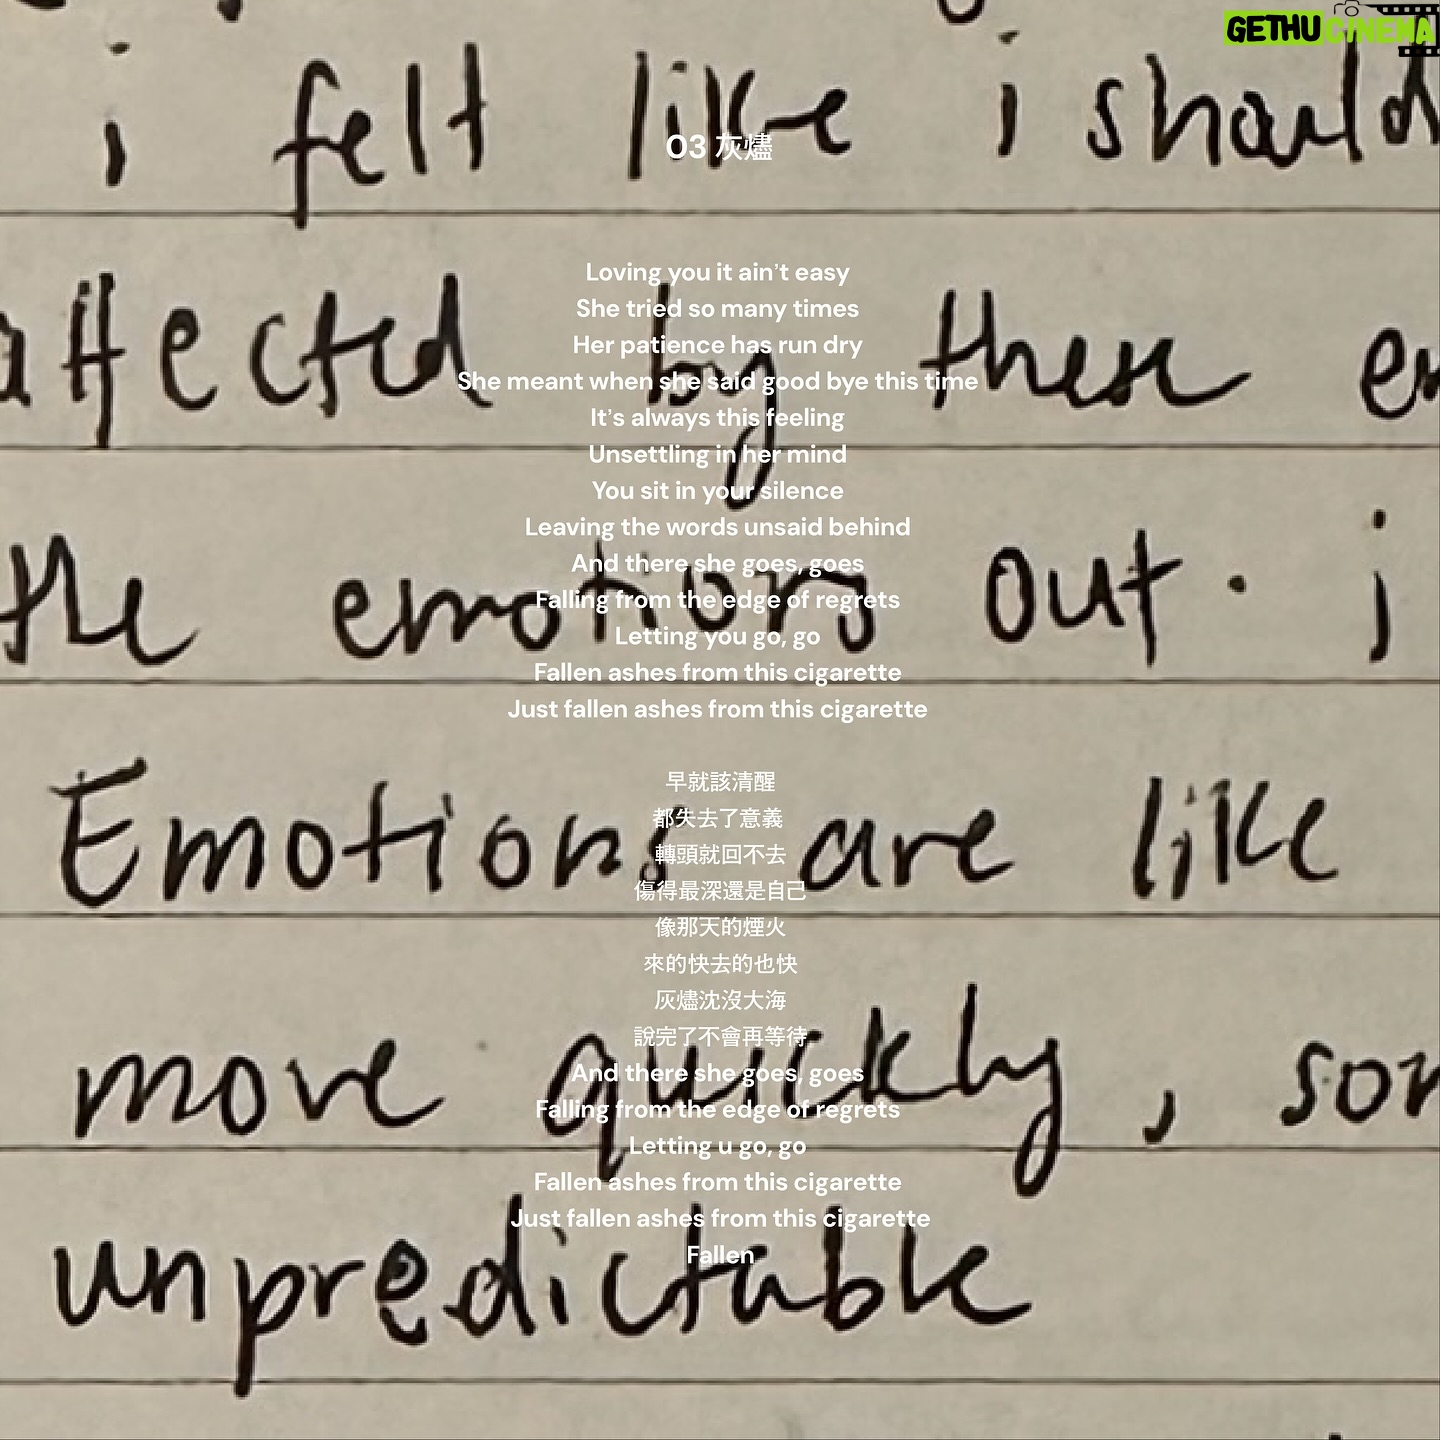 GETHUCINEMA
i felt like i should
03 灰燼
Loving you it ain't easy
She tried so many times
affected by these
Her patience has run dry
She meant when she said good bye this time
It's always this feeling
Unsettling in her mind
You sit in your silence
Leaving the words unsaid behind
the emotions out. i
And there she goes, goes
Falling from the edge of regrets
Letting you go, go
Fallen ashes from this cigarette
Just fallen ashes from this cigarette
早就該清醒
Emotions are like
都失去了意義
轉頭就回不去
傷得最深還是自己
像那天的煙火
來的快去的也快
灰燼沈沒大海
說完了不會再等待
move quickly,
And there she goes, goes
Falling from the edge of regrets
Letting u go, go
Fallen ashes from this cigarette
Just fallen ashes from this cigarette
unpredictable
Fallen